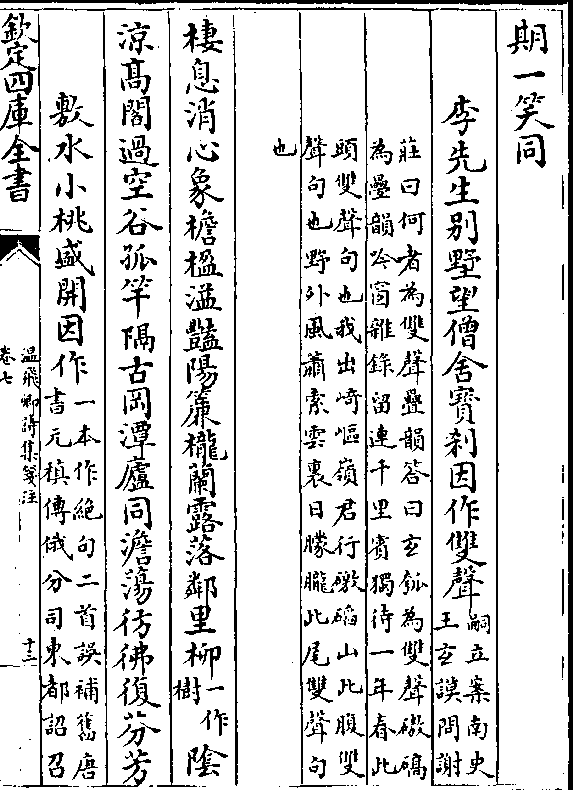 期一笑同
李先生别墅望僧舍寳刹因作雙聲嗣立案南史
王玄謨問謝
莊曰何者為雙聲疊韻答曰玄瓠為雙聲磝碻
為疊韻吟窗雜錄留連千里賓獨待一年春此
頭雙聲句也我出崎嶇嶺君行磝磖山此腹雙
聲句也野外風蕭索雲裏日朦朧此尾雙聲句
也
棲息消心象檐楹溢豔陽簾櫳蘭露落鄰里柳一作樹陰
涼髙閣過空谷孤竿隔古岡潭廬同澹蕩彷彿復芬芳
敷水小桃盛開因作一本作絶句二首誤補舊唐
書元稹傳俄分司東都詔召
欽定四庫全書
温飛卿詩集箋注
卷七
十三